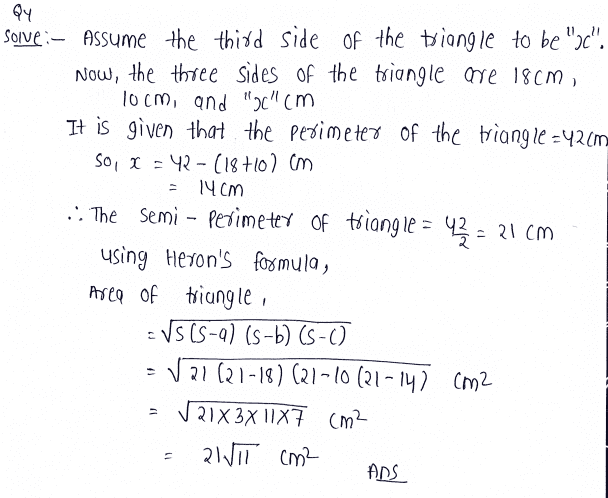 Q4
Solve:- Assume the third side of the triangle to be "x".
Now, the three sides of the triangle are 18cm,
10 cm, and "x" cm
It is given that the perimeter of the triangle = 42cm
So, x = 42 - (18+10) cm
= 14 cm
∴ The semi - perimeter of triangle = 42/2 = 21 cm
using Heron's formula,
Area of triangle,
= √s(s-a) (s-b) (s-c)
= √21 (21-18) (21-10 (21-14) cm2
= √21x3x11x7 cm2
= 21√11 cm2
Ans